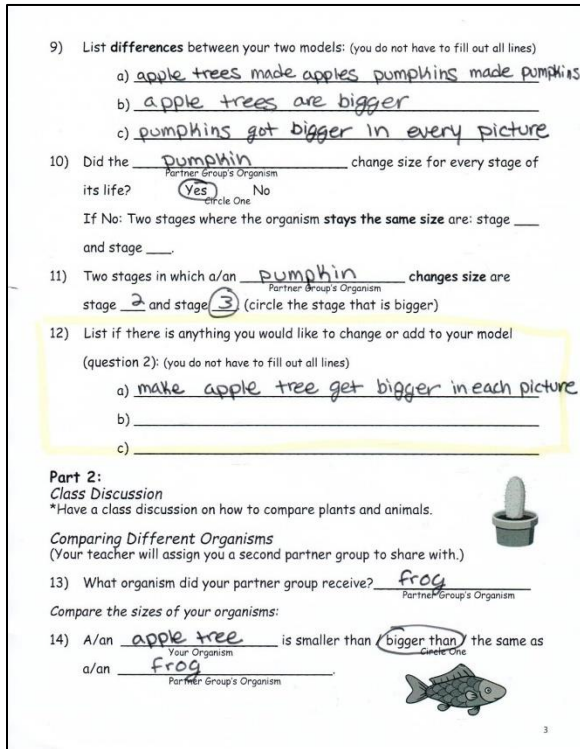 9) List differences between your two models: (you do not have to fill out all lines)
a) apple trees made apples pumpkins made pumpkins
b) apple trees are bigger
c) pumpkins got bigger in every picture
10) Did the pumpkin change size for every stage of
Partner Group's Organism
its life? Yes No
Circle One
If No: Two stages where the organism stays the same size are: stage ___
and stage ___.
11) Two stages in which a/an pumpkin changes size are
Partner Group's Organism
stage 2 and stage 3 (circle the stage that is bigger)
12) List if there is anything you would like to change or add to your model
(question 2): (you do not have to fill out all lines)
a) make apple tree get bigger in each picture
b)
c)
Part 2:
Class Discussion
*Have a class discussion on how to compare plants and animals.
Comparing Different Organisms
(Your teacher will assign you a second partner group to share with.)
13) What organism did your partner group receive? frog
Partner Group's Organism
Compare the sizes of your organisms:
14) A/an apple tree is smaller than / bigger than / the same as
Your Organism Circle One
a/an frog.
Partner Group's Organism
3